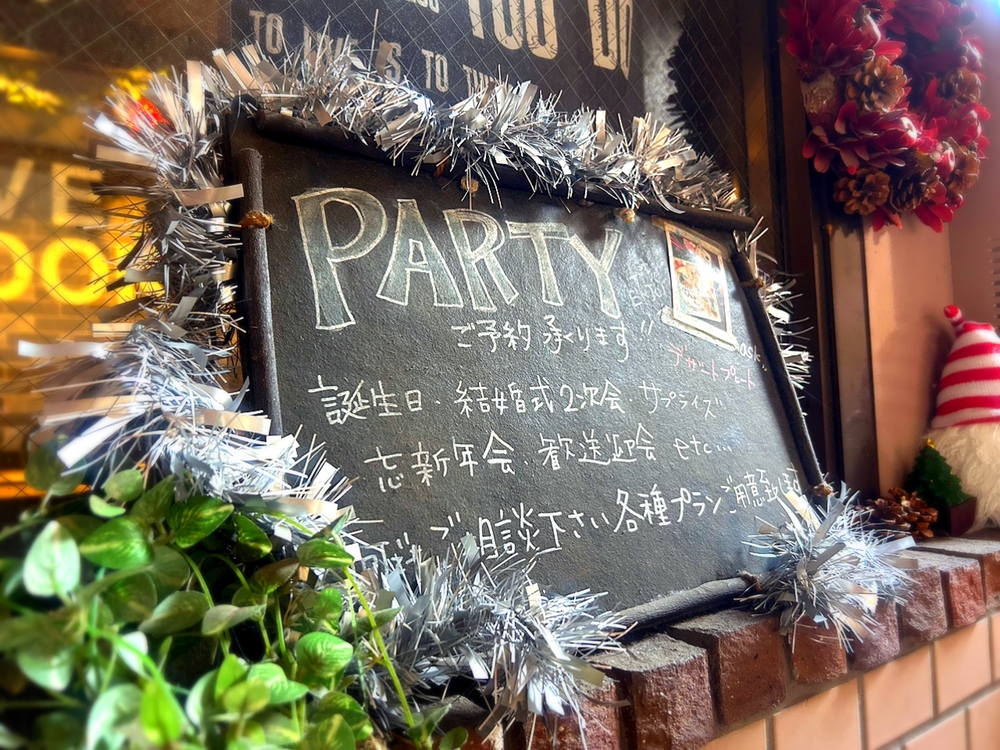 YOU DO
TO TO
PARTY
ご予約 承ります!!
デザートプレート
誕生日・結婚式2次会・サプライズ
忘新年会・歓送迎会 etc…
ご相談下さい 各種プランご用意